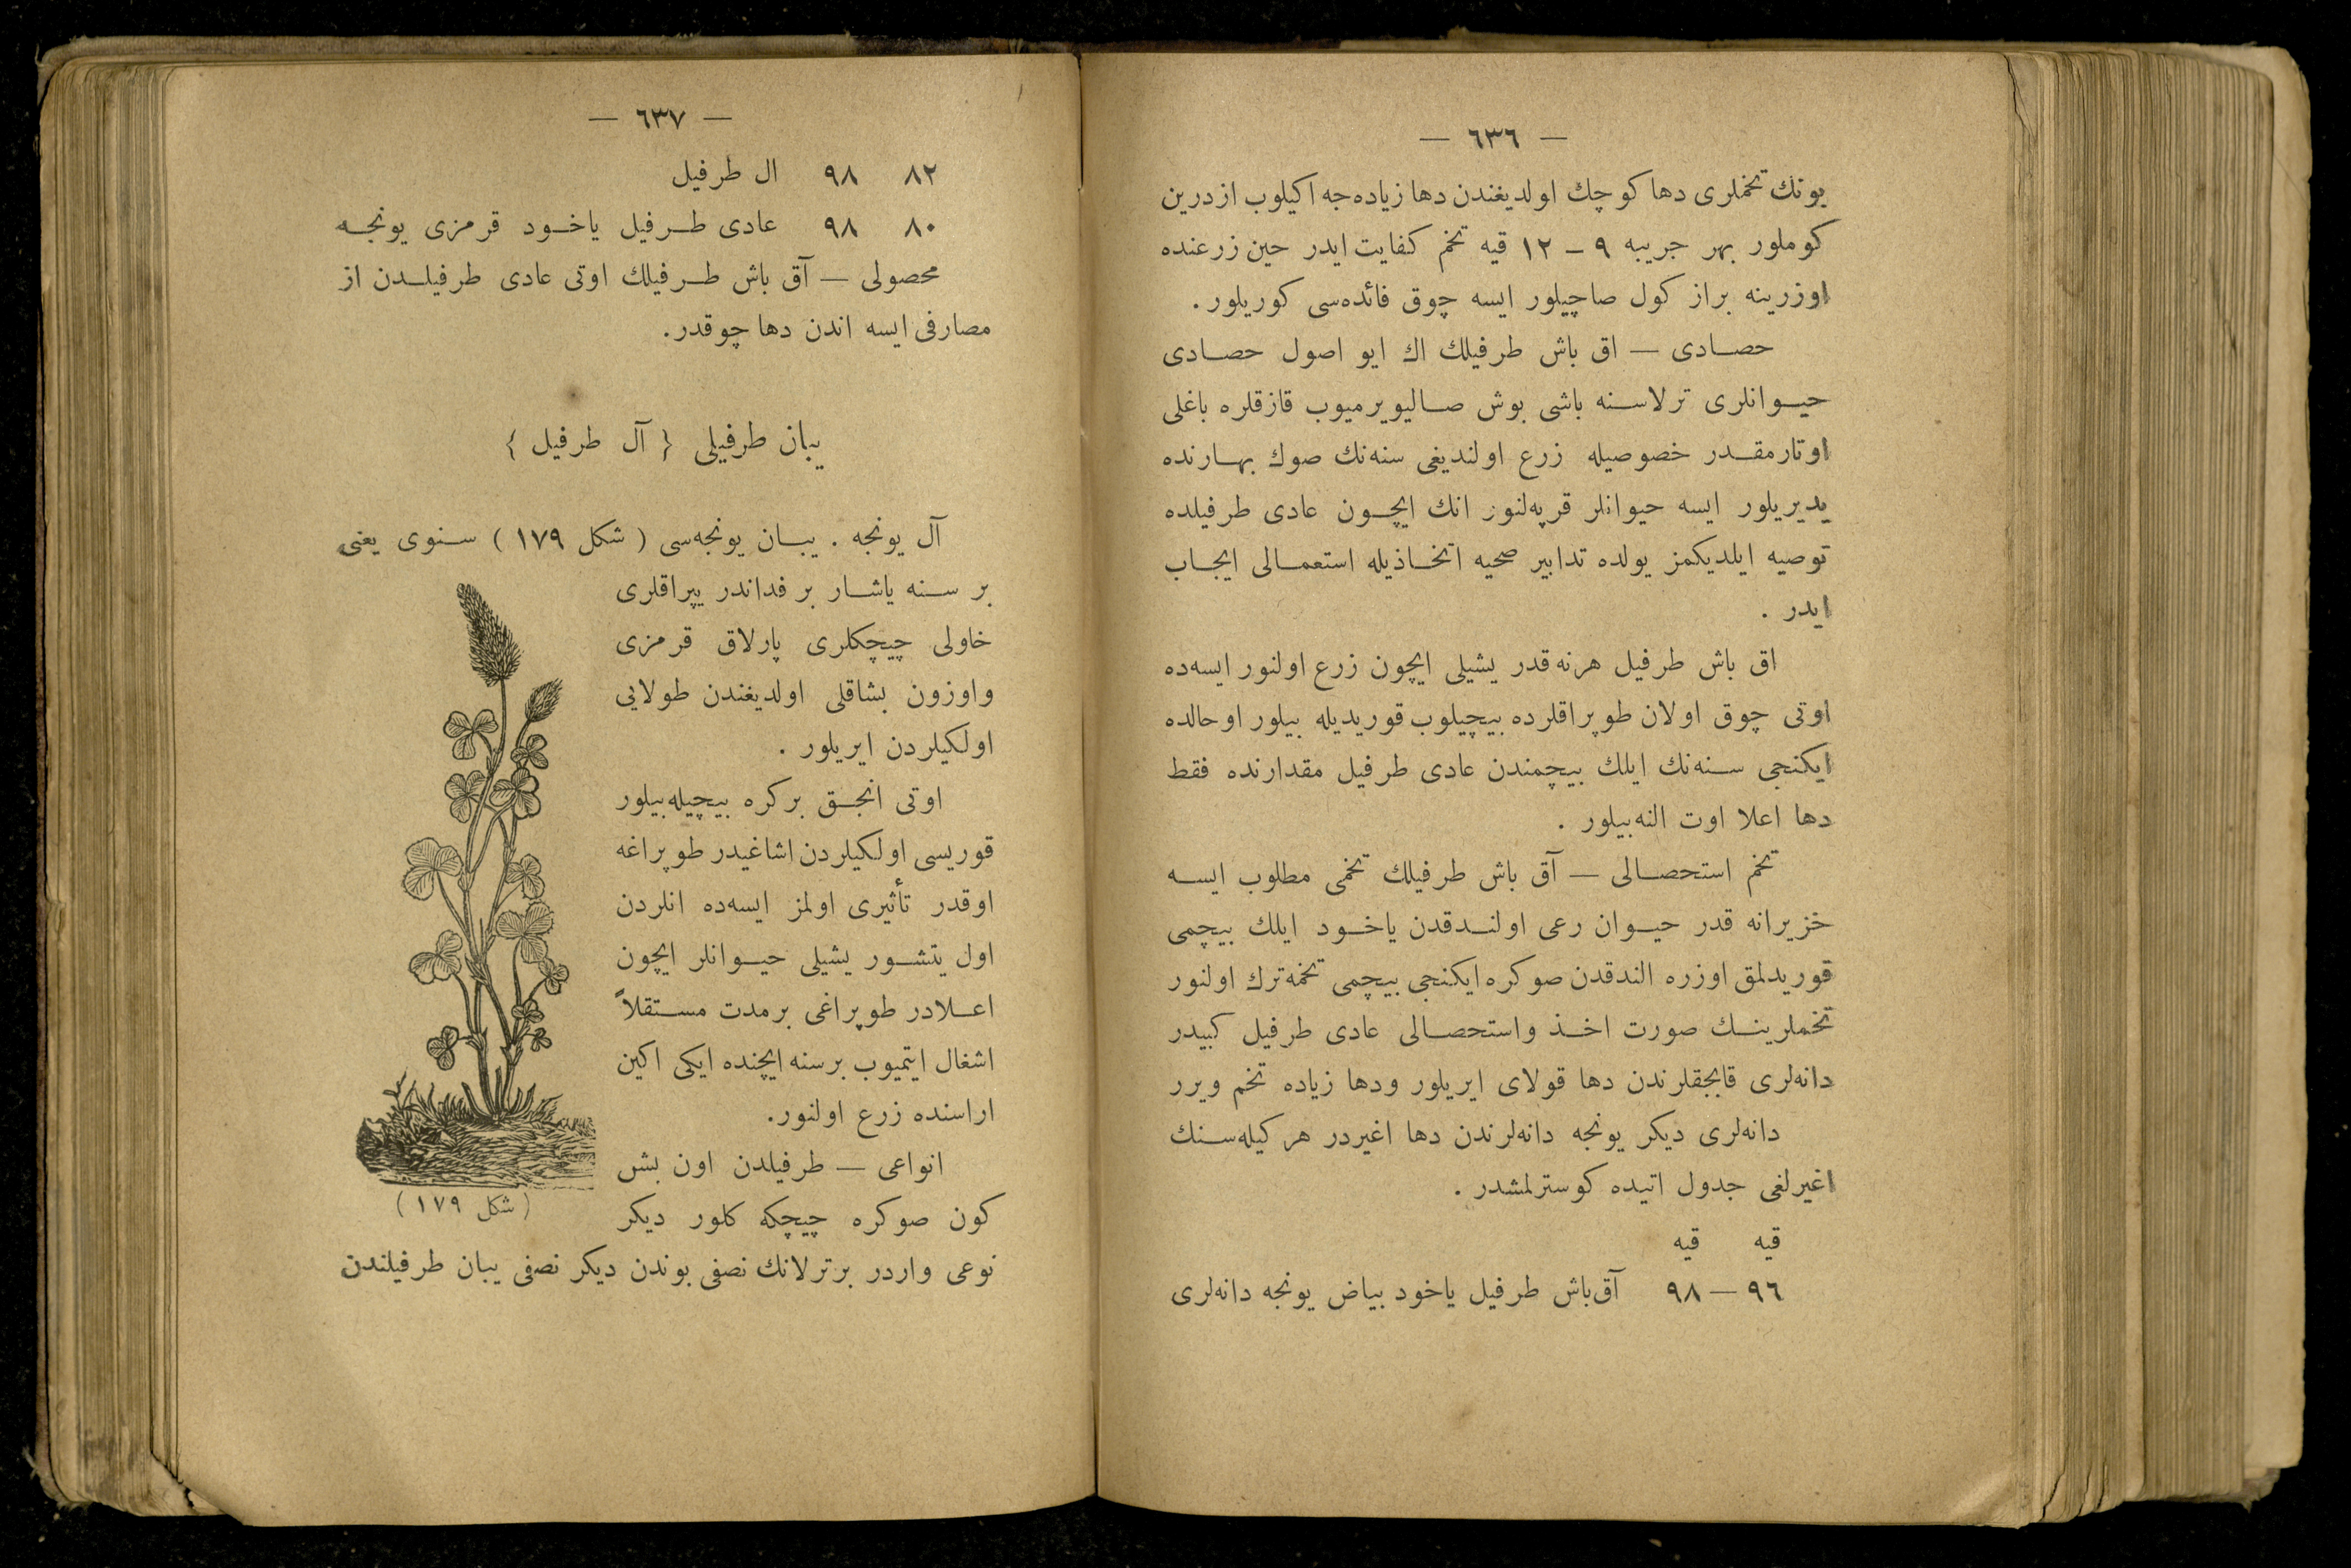 — ٦٣٦ —
بونك تخملری دها كوچك اولدیغندن دها زیاده‌جه اكیلوب از درین
كوملور بهر جریبه ٩ – ١٢ قیه تخم كفایت ایدر حین زرعنده
اوزرینه براز كول صاچیلور ایسه چوق فائده‌سی كوریلور .
حصادی — اق باش طرفیلك اك ایو اصول حصادی
حیوانلری ترلاسنه باشی بوش صالیویرمیوب قازقلره باغلی
اوتارمقدر خصوصیله زرع اولندیغی سنه‌نك صوك بهارنده
یدیریلور ایسه حیوانلر قرپه‌لنور انك ایچون عادی طرفیلده
توصیه ایلدیكمز یولده تدابیر صحیه اتخاذیله استعمالی ایجاب
ایدر .
اق باش طرفیل هرنه قدر یشیلی ایچون زرع اولنور ایسه‌ده
اوتی چوق اولان طوپراقلرده بیچیلوب قوریدیله بیلور اوحالده
ایكنجی سنه‌نك ایلك بیچمندن عادی طرفیل مقدارنده فقط
دها اعلا اوت النه‌بیلور .
تخم استحصالی — آق باش طرفیلك تخمی مطلوب ایسه
خزیرانه قدر حیوان رعی اولندقدن یاخود ایلك بیچمی
قوریدلمق اوزره الندقدن صوكره ایكنجی بیچمی تخمه ترك اولنور
تخملرینك صورت اخذ واستحصالی عادی طرفیل كبیدر
دانه‌لری قابجقلرندن دها قولای ایریلور ودها زیاده تخم ویرر
دانه‌لری دیكر یونجه دانه‌لرندن دها اغیردر هر كیله‌سنك
اغیرلغی جدول اتیده كوسترلمشدر .
قیه قیه
٩٦ — ٩٨ آق‌باش طرفیل یاخود بیاض یونجه دانه‌لری
— ٦٣٧ —
٨٢ ٩٨ ال طرفیل
٨٠ ٩٨ عادی طرفیل یاخود قرمزی یونجه
محصولی — آق باش طرفیلك اوتی عادی طرفیلدن از
مصارفی ایسه اندن دها چوقدر.
یبان طرفیلی { آل طرفیل }
آل یونجه . یبان یونجه‌سی ( شكل ١٧٩ ) سنوی یعنی
بر سنه یاشار بر فداندر یپراقلری
خاولی چیچكلری پارلاق قرمزی
واوزون بشاقلی اولدیغندن طولایی
اولكیلردن ایریلور .
اوتی انجق بركره بیچیله‌بیلور
قوریسی اولكیلردن اشاغیدر طوپراغه
اوقدر تأثیری اولمز ایسه‌ده انلردن
اول یتشور یشیلی حیوانلر ایچون
اعلادر طوپراغی برمدت مستقلاً
اشغال ایتمیوب برسنه ایچنده ایكی اكین
اراسنده زرع اولنور.
انواعی — طرفیلدن اون بش
كون صوكره چیچكه كلور دیكر
نوعی واردر برترلانك نصفی بوندن دیكر نصفی یبان طرفیلندن
( شكل ١٧٩ )